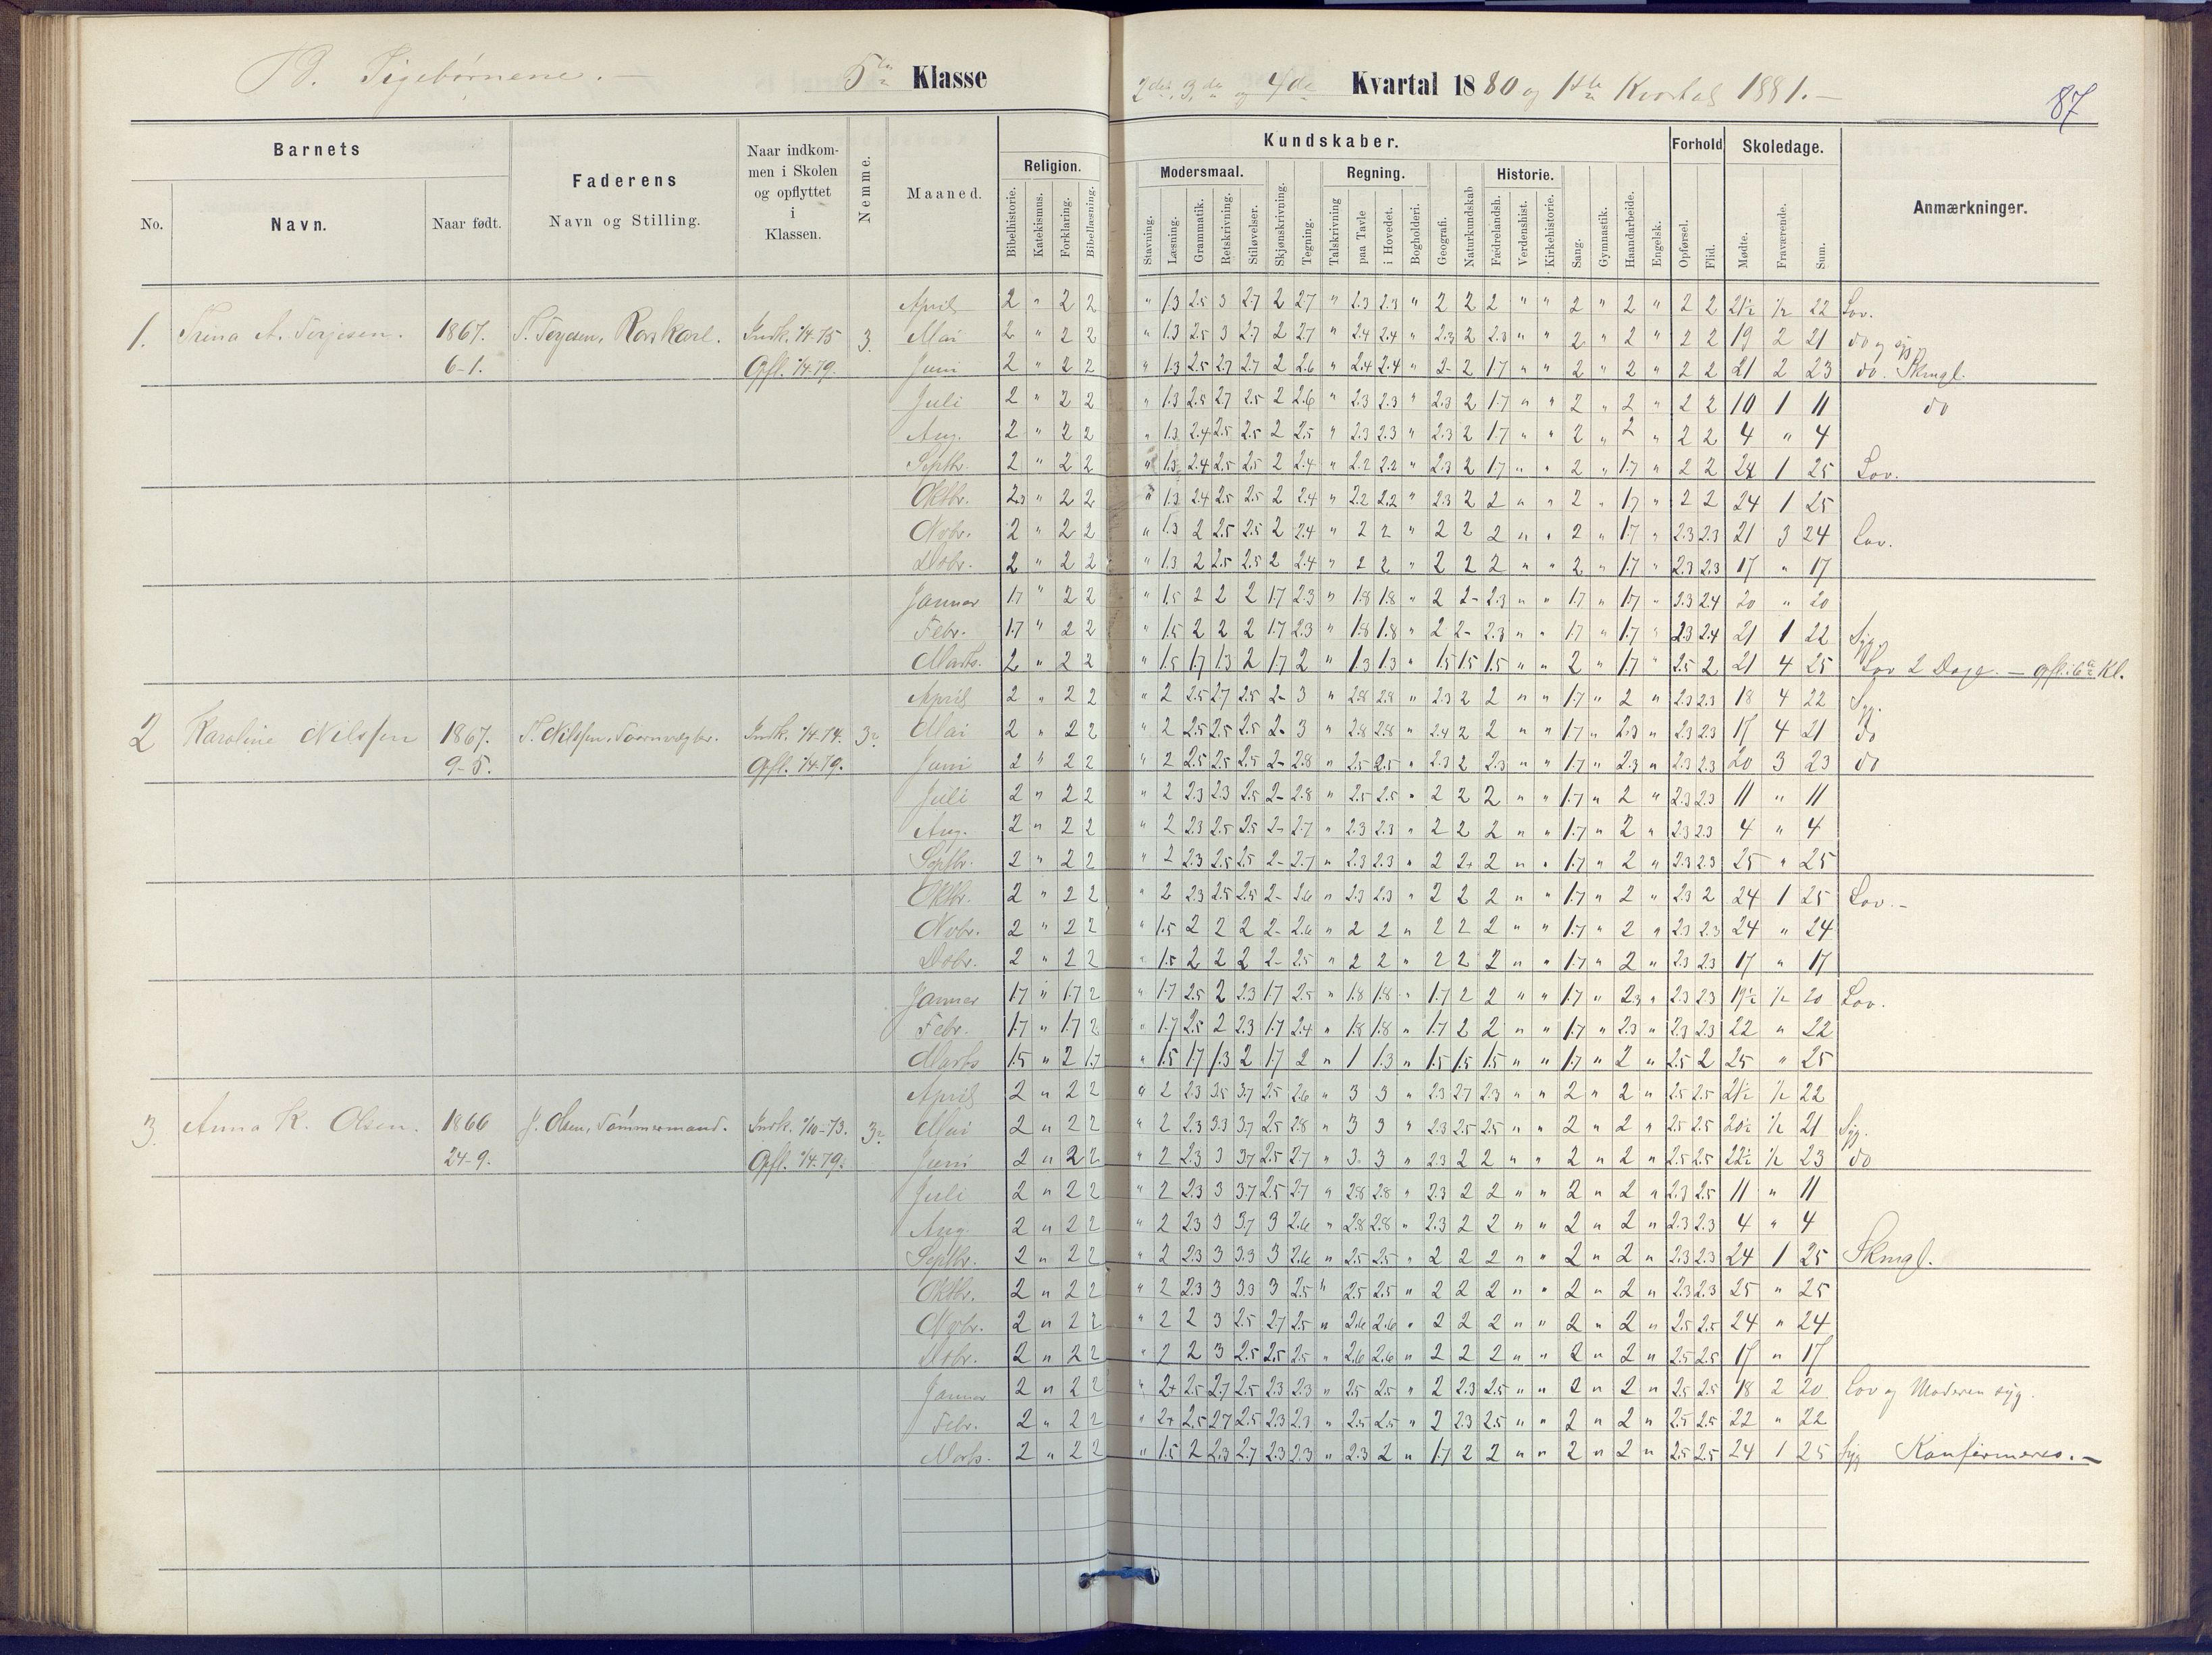 B. Pigebørnene. —
5te Klasse
2det, 3die og 4de Kvartal 1880 og 1ste Kvartal 1881. —
87
Barnets
No.
Navn.
Naar født.
Faderens
Navn og Stilling.
Naar indkom-
men i Skolen
og opflyttet
i
Klassen.
Nemme.
Maaned.
Kundskaber.
Religion.
Bibelhistorie.
Katekismus.
Forklaring.
Bibellæsning.
Modersmaal.
Stavning.
Læsning.
Grammatik.
Retskrivning.
Stiløvelser.
Skjønskrivning.
Tegning.
Regning.
Talskrivning
paa Tavle
i Hovedet.
Bogholderi.
Geografi.
Naturkundskab
Historie.
Fædrelandsh.
Verdenshist.
Kirkehistorie.
Sang.
Gymnastik.
Haandarbeide.
Engelsk.
Forhold
Opførsel.
Flid.
Skoledage.
Mødte.
Fraværende.
Sum.
Anmærkninger.
April 2 " 2 2 " 1.3 2.5 3 2.7 2 2.7 " 2.3 2.3 " 2 2 2 " " 2 " 2 " 2 2 21½ ½ 22 Lov.
1. Trina A. Terjesen. 1867. T. Terjesen, Indk. 1/4-75 3. Mai 2 " 2 2 " 1.3 2.5 3 2.7 2 2.7 " 2.4 2.4 " 2.3 2 2.3 " " 2 " 2 " 2 2 19 2 21 do og syg
6-1. Opfl. 1/4-79. Juni 2 " 2 2 " 1.3 2.5 2.7 2.7 2 2.6 " 2.4 2.4 " 2- 2 1.7 " " 2 " 2 " 2 2 21 2 23 do. Skmgl.
Juli 2 " 2 2 " 1.3 2.5 2.7 2.5 2 2.6 " 2.3 2.3 " 2.3 2 1.7 " " 2 " 2 " 2 2 10 1 11 do
Aug. 2 " 2 2 " 1.3 2.4 2.5 2.5 2 2.5 " 2.3 2.3 " 2.3 2 1.7 " " 2 " 2 " 2 2 4 " 4
Septbr. 2 " 2 2 " 1.3 2.4 2.5 2.5 2 2.4 " 2.2 2.2 " 2.3 2 1.7 " " 2 " 1.7 " 2 2 24 1 25 Lov.
Oktbr. 2.3 " 2 2 " 1.3 2.4 2.5 2.5 2 2.4 " 2.2 2.2 " 2.3 2 2 " " 2 " 1.7 " 2 2 24 1 25
Novbr. 2 " 2 2 " 1.3 2 2.5 2.5 2 2.4 " 2 2 " 2 2 2 " " 2 " 1.7 " 2.3 2.3 21 3 24 Lov.
Decbr. 2 " 2 2 " 1.3 2 2.5 2.5 2 2.4 " 2 2 " 2 2 2 " " 2 " 1.7 " 2.3 2.3 17 " 17
Januar 1.7 " 2 2 " 1.5 2 2 2 1.7 2.3 " 1.8 1.8 " 2 2- 2.3 " " 1.7 " 1.7 " 2.3 2.4 20 " 20
Febr. 1.7 " 2 2 " 1.5 2 2 2 1.7 2.3 " 1.8 1.8 " 2 2- 2.3 " " 1.7 " 1.7 " 2.3 2.4 21 1 22 Syg
Marts. 2 " 2 2 " 1.5 1.7 1.3 2 1.7 2 " 1.3 1.3 " 1.5 1.5 1.5 " " 2 " 1.7 " 2.5 2 21 4 25 Lov 2 Dage. — opfl. i 6te Kl.
April 2 " 2 2 " 2 2.5 2.7 2.5 2- 3 " 2.8 2.8 " 2.3 2 2 " " 1.7 " 2 " 2.3 2.3 18 4 22 Syg.
2 Karoline Nilssen 1867. Indk. 1/4-74. 3? Mai 2 " 2 2 " 2 2.5 2.5 2.5 2- 3 " 2.8 2.8 " 2.4 2 2 " " 1.7 " 2.3 " 2.3 2.3 17 4 21 do
9-5. Opfl. 1/4-79. Juni 2 " 2 2 " 2 2.5 2.5 2.5 2- 2.8 " 2.5 2.5 " 2.3 2 2.3 " " 1.7 " 2.3 " 2.3 2.3 20 3 23 do
Juli 2 " 2 2 " 2 2.3 2.3 2.5 2- 2.8 " 2.5 2.5 " 2 2 2 " " 1.7 " 2 " 2.3 2.3 11 " 11
Aug. 2 " 2 2 " 2 2.3 2.5 2.5 2- 2.7 " 2.3 2.3 " 2 2 2 " " 1.7 " 2 " 2.3 2.3 4 " 4
Septbr. 2 " 2 2 " 2 2.3 2.5 2.5 2- 2.7 " 2.3 2.3 " 2 2+ 2 " " 1.7 " 2 " 2.3 2.3 25 " 25
Oktbr. 2 " 2 2 " 2 2.3 2.5 2.5 2- 2.6 " 2.3 2.3 " 2 2 2 " " 1.7 " 2 " 2.3 2 24 1 25 Lov. -
Novbr. 2 " 2 2 " 1.5 2 2 2 2- 2.6 " 2 2 " 2 2 2 " " 1.7 " 2 " 2.3 2.3 24 " 24
Decbr. 2 " 2 2 " 1.5 2 2 2 2- 2.5 " 2 2 " 2 2 2 " " 1.7 " 2 " 2.3 2.3 17 " 17
Januar 1.7 " 1.7 2 " 1.7 2.5 2 2.3 1.7 2.5 " 1.8 1.8 " 1.7 2 2 " " 1.7 " 2.3 " 2.3 2.3 19½ ½ 20 Lov.
Febr. 1.7 " 1.7 2 " 1.7 2.5 2 2.3 1.7 2.4 " 1.8 1.8 " 1.7 2 2 " " 1.7 " 2.3 " 2.3 2.3 22 " 22
Marts 1.5 " 2 1.7 " 1.5 1.7 1.3 2 1.7 2 " 1 1.3 " 1.5 1.5 1.5 " " 1.7 " 2 " 2.5 2 25 " 25
April 2 " 2 2 " 2 2.3 3.5 3.7 2.5 2.6 " 3 3 " 2.3 2.7 2.3 " " 2 " 2 " 2.5 2.5 21½ ½ 22
3. Anna K. Olsen. 1866 J. Olsen, Tømmermand. Indk. 1/10-73. 3? Mai 2 " 2 2 " 2 2.3 3.3 3.7 2.5 2.8 " 3 3 " 2.3 2.5 2.5 " " 2 " 2 " 2.5 2.5 20½ ½ 21 Syg.
24-9. Opfl. 1/4-79. Juni 2 " 2 2 " 2 2.3 3 3.7 2.5 2.7 " 3. 3 " 2.3 2 2 " " 2 " 2 " 2.5 2.5 22½ ½ 23 do
Juli 2 " 2 2 " 2 2.3 3 3.7 2.5 2.7 " 2.8 2.8 " 2.3 2 2 " " 2 " 2 " 2.3 2.5 11 " 11
Aug. 2 " 2 2 " 2 2.3 3 3.7 3 2.6 " 2.8 2.8 " 2.3 2 2 " " 2 " 2 " 2.3 2.3 4 " 4
Septbr. 2 " 2 2 " 2 2.3 3 3.3 3 2.6 " 2.5 2.5 " 2 2 2 " " 2 " 2 " 2.3 2.3 24 1 25 Skmgl.
Oktbr. 2 " 2 2 " 2 2.3 3 3.3 3 2.5 " 2.5 2.5 " 2 2 2 " " 2 " 2 " 2.3 2.3 25 " 25
Novbr. 2 " 2 2 " 2 2 3 2.5 2.7 2.5 " 2.6 2.6 " 2 2 2 " " 2 " 2 " 2.5 2.5 24 " 24
Decbr. 2 " 2 2 " 2 2 3 2.5 2.5 2.5 " 2.6 2.6 " 2 2 2 " " 2 " 2 " 2.5 2.5 17 " 17
Januar 2 " 2 2 " 2+ 2.5 2.7 2.5 2.3 2.3 " 2.5 2.5 " 2 2.3 2.5 " " 2 " 2 " 2.5 2.5 18 2 20 Lov og Moderen syg.
Febr. 2 " 2 2 " 2+ 2.5 2.7 2.5 2.3 2.3 " 2.5 2.5 " 2 2.3 2.5 " " 2 " 2 " 2.5 2.5 22 " 22
Marts. 2 " 2 2 " 1.5 2 2.3 2.7 2.3 2.3 " 2.3 2 " 1.7 2 2 " " 2 " 2 " 2.5 2.5 24 1 25 Syg Konfirmeres. —